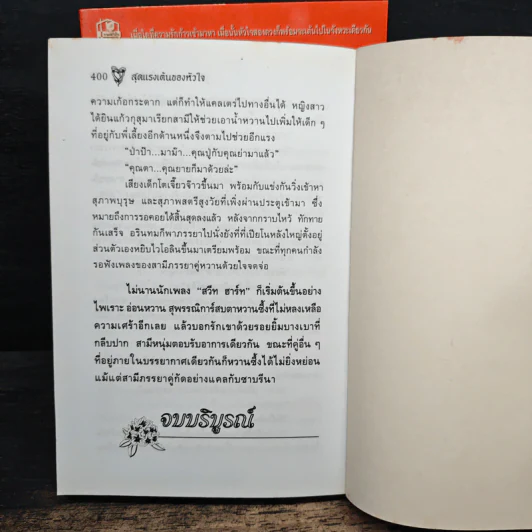 เมื่อใดที่ความรักก้าวเข้ามาหา เมื่อนั้นหัวใจสองดวงก็พร้อมจะเต้นไปในจังหวะเดียวกัน
400 สุดแรงเต้นของหัวใจ
ความเก้อกระดาก แต่ก็ทำให้แคลเตร่ไปทางอื่นได้ หญิงสาว
ได้ยินแก้วกุสุมาเรียกสามีให้ช่วยเอาน้ำหวานไปเพิ่มให้เด็ก ๆ
ที่อยู่กับพี่เลี้ยงอีกด้านหนึ่งจึงตามไปช่วยอีกแรง
“ป่าป๊า...มาม้า...คุณปู่กับคุณย่ามาแล้ว”
“คุณตา...คุณยายก็มาด้วยล่ะ”
เสียงเด็กโตเจี๊ยวจ๊าวขึ้นมา พร้อมกับแข่งกันวิ่งเข้าหา
สุภาพบุรุษ และสุภาพสตรีสูงวัยที่เพิ่งผ่านประตูเข้ามา ซึ่ง
หมายถึงการรอคอยได้สิ้นสุดลงแล้ว หลังจากกราบไหว้ ทักทาย
กันเสร็จ อรินทมก็พาภรรยาไปนั่งยังที่ที่เปียโนหลังใหญ่ตั้งอยู่
ส่วนตัวเองหยิบไวโอลินขึ้นมาเตรียมพร้อม ขณะที่ทุกคนกำลัง
รอฟังเพลงของสามีภรรยาคู่หวานด้วยใจจดจ่อ
ไม่นานนักเพลง “สวีท ฮาร์ท” ก็เริ่มต้นขึ้นอย่าง
ไพเราะ อ่อนหวาน สุพรรณิการ์สบตาหวานซึ้งที่ไม่หลงเหลือ
ความเศร้าอีกเลย แล้วบอกรักเขาด้วยรอยยิ้มบางเบาที่
กลีบปาก สามีหนุ่มตอบรับอาการเดียวกัน ขณะที่คู่อื่น ๆ
ที่อยู่ภายในบรรยากาศเดียวกันก็หวานซึ้งได้ไม่ยิ่งหย่อน
แม้แต่สามีภรรยาคู่กัดอย่างแคลกับซาบรีนา
จบบริบูรณ์